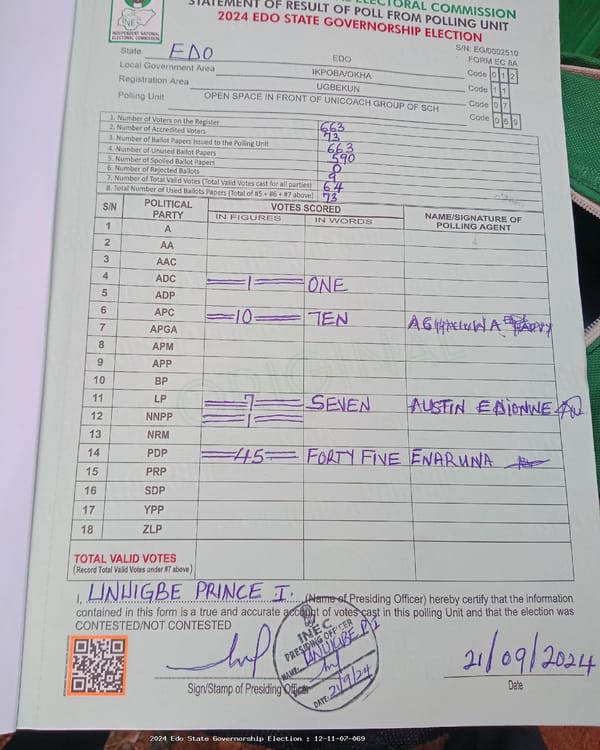 INDEPENDENT NATIONAL ELECTORAL COMMISSION
STATEMENT OF RESULT OF POLL FROM POLLING UNIT
2024 EDO STATE GOVERNORSHIP ELECTION
S/N: EG/0002510
FORM EC 8A
State EDO EDO Code 0 1 2
Local Government Area IKPOBA/OKHA Code 1 1
Registration Area UGBEKUN Code 0 7
Polling Unit OPEN SPACE IN FRONT OF UNICOACH GROUP OF SCH Code 0 6 9
1. Number of Voters on the Register 663
2. Number of Accredited Voters 73
3. Number of Ballot Papers Issued to the Polling Unit 663
4. Number of Unused Ballot Papers 590
5. Number of Spoiled Ballot Papers 0
6. Number of Rejected Ballots 9
7. Number of Total Valid Votes (Total Valid Votes cast for all parties) 64
8. Total Number of Used Ballots Papers (Total of #5 + #6 + #7 above) 73
S/N POLITICAL PARTY VOTES SCORED NAME/SIGNATURE OF POLLING AGENT
IN FIGURES IN WORDS
1 A
2 AA
3 AAC
4 ADC 1 ONE
5 ADP
6 APC 10 TEN
7 APGA
8 APM
9 APP
10 BP
11 LP 7 SEVEN AUSTIN
12 NNPP 1
13 NRM
14 PDP 45 FORTY FIVE ENARUNA
15 PRP
16 SDP
17 YPP
18 ZLP
TOTAL VALID VOTES
(Record Total Valid Votes under #7 above)
I, UNUIGBE PRINCE I. (Name of Presiding Officer) hereby certify that the information
contained in this form is a true and accurate account of votes cast in this polling Unit and that the election was
CONTESTED/NOT CONTESTED
INEC
PRESIDING OFFICER
NAME: UNUIGBE P.I
DATE: 21/9/24
21/09/2024
Sign/Stamp of Presiding Officer
Date
2024 Edo State Governorship Election : 12-11-07-069